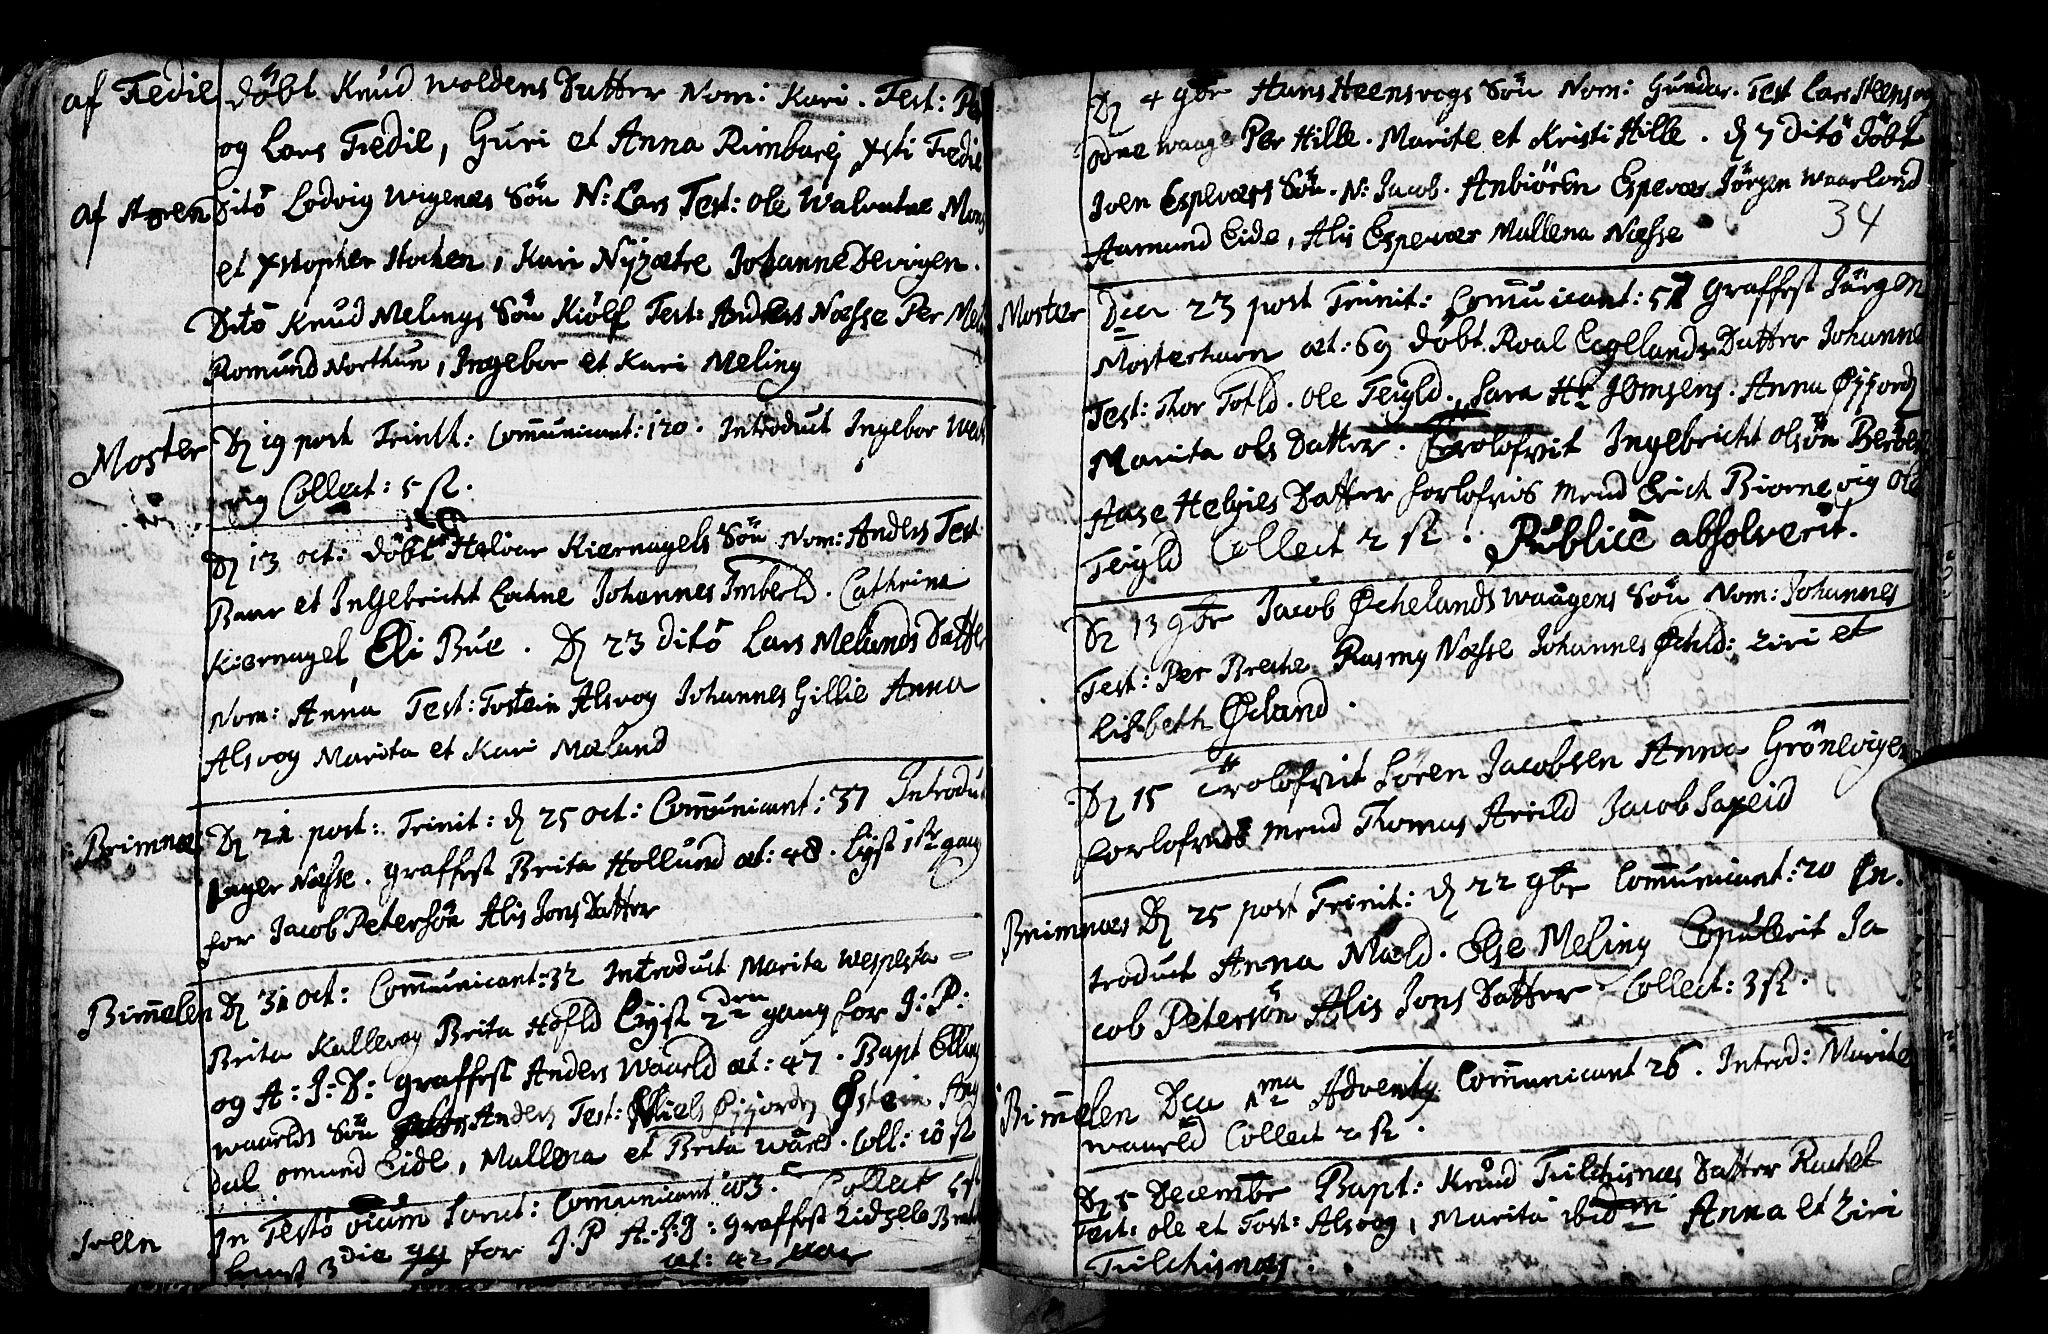 af Fedie döbt Knud Woldens Datter Nom: Kari. Test: Per
og Lars Fedie, Guri et Anna Rimbarej Xsti Fedie
af Storen Ditö Lodvig Wigenæs Sön N: Lars Test: Ole Walvatne Mons
et Xstopher Stochen, Kari Nÿzætre Johanne Devigen.
Ditö Knud Melings Sön Kiölf Test: Anders Næsse Per Mel
Romund Northun, Ingebor et Kari Meling
Moster Dj 19 post Trinit: Communicant: 120. Introduct Ingebor
vig Collect: 5 ß.
Dj 13 oct: döbt Halvar Kiernagels Sön Nom: Anders Test
et Ingebricht Lochne Johannes Imberld. Cathrina
Kiernagel, Eli Bue. Dj 23 ditö Lars Melands Datter
Nom: Anna Test: Tostein Alsvog Johannes Gillie Anna
Alsvog Marita et Kari Mæland
Brimnæs Dj 21 post: Trinit: dj 25 oct: Communicant: 37 Introduct
Inger Næsse. graffest Brita Hollund æt: 48. Lyst 1ste gang
for Jacob Petersön Alis Jons Datter
Bimelen Dj 31 oct: Communicant: 32 Introduct Marita Wespesta=
Brita Kallevog Brita Hofld Lÿst 2den gang for J: P:
og A: J: D: graffest Anders Waarld æt: 47. Bapt Elling
waarlds Sön Anders Test: Niels Øjjordz Østein Ang
dal omund Eide, Mallena et Brita Wårld. Coll: 10 ß
In Festo oium Sanct: Communicant 103. Collect
Lyust 3die gg for J. P A: J: D: graffest
æt: 42
Dj 4 9br Hans Steensvogs Sön Nom: Gundar. Test Lars Steensvog
Odne waage Per Hille. Marite et Kristi Hille. dj 7 ditö döbt
Iven Espeværs Sön. N: Jacob. Anbiören Espevær Jörgen Waarlond
Aamund Eide, Alis Espevær Mallena Næsse
34
Moster Dca 23 post Trinit: Communicant: 57 graffest Jörgen
Mosterhavn æt: 69 döbt. Roal Eegellands Datter Johanne
Test: Thor Totld. Ole Teigld. Sara Hr Jemsens. Anna Øjjordz
Marita ols Datter. Trolofvit Ingebricht Olsön
Aase Helgies Datter forlofvis mend Erich Biørnevig Ole
Teigld Collect 2 ß. Publicè absolverit.
Dj 13 9br Jacob Øchelands Waagens Sön Nom: Johannes
Test: Per Breche Rasmy Næsse Johannes Øchld: Ziri et
Lisbeth Øcland.
Dj 15 Trolofvit Sören Jacobsen Anna Grönevigen
forlofvids mend Thomas Arild Jacob Sapeid
Brimnæs Dj 25 post Trinit: dj 22 9br Communicant: 20 In.
troduct Anna Mæld. Else Meling Copulerit Ja
cob Petersön Alis Jons Datter. Collect: 3 ß.
Bimelen Dca 1ma Adventg Communicant 26. Introd: Marite
waarld Collect 2 ß.
Dj 5 Decembr Bapt: Knud Tulchisnæs Datter Rachel
Test: Ole et Tost: Alsvog, Marita ibidm Anna et Ziri
Tulchisnæs.